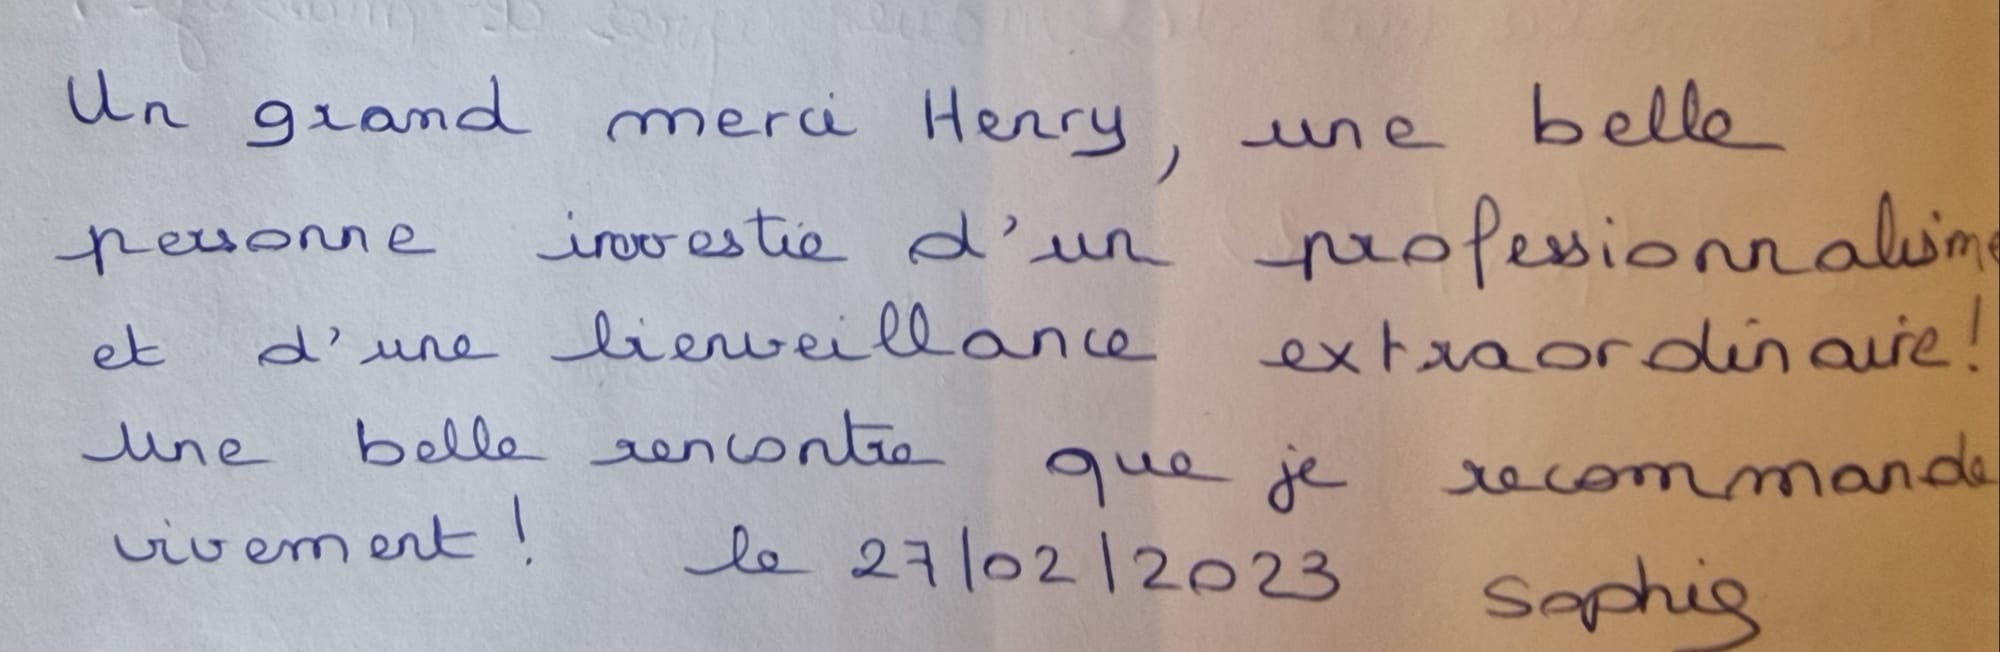 Un grand merci Henry, une belle
personne investie d'un professionnalisme
et d'une bienveillance extraordinaire!
Une belle rencontre que je recommande
vivement! le 27/02/2023 Sophie